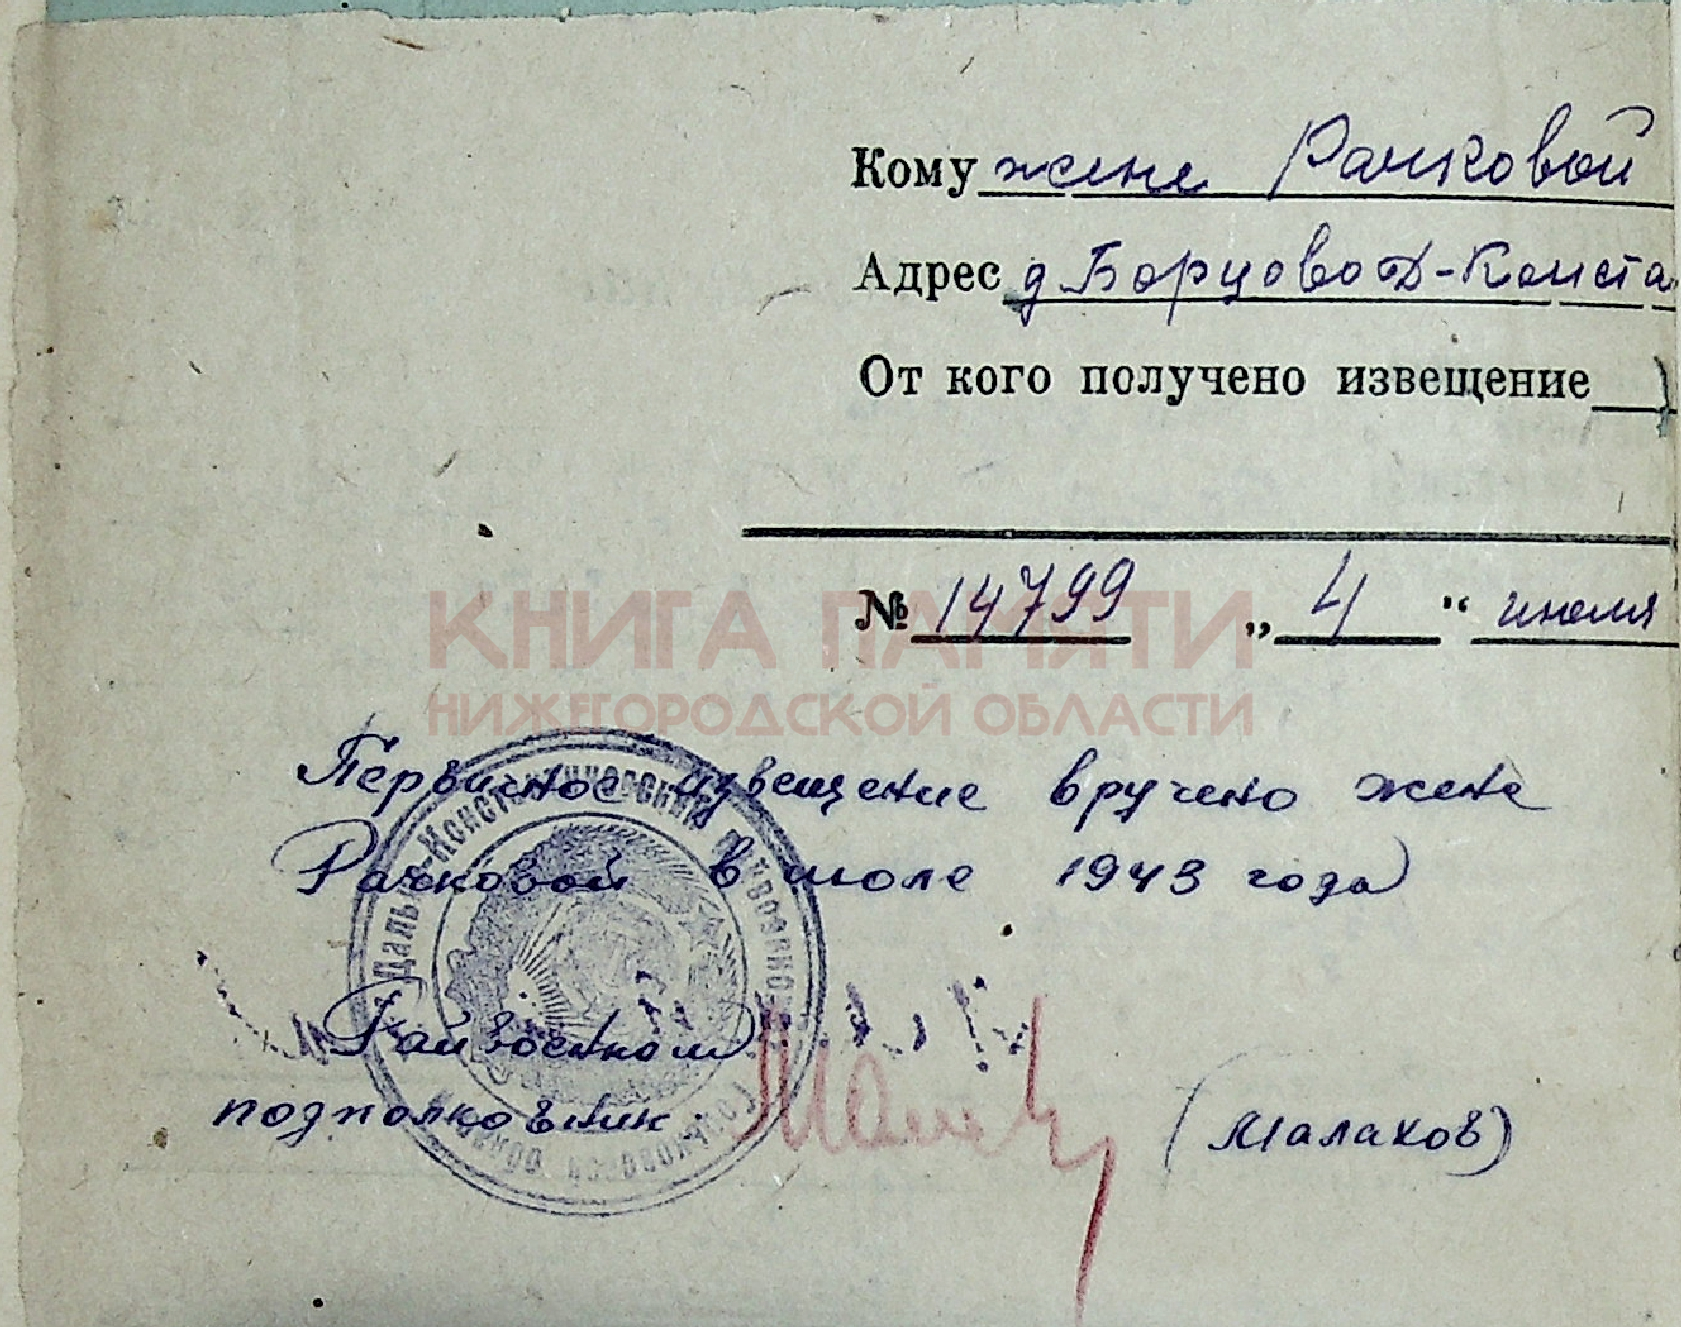 Кому жене Рачковой
Адрес д Борцово Д-Конста
От кого получено извещение
№ 14799 „ 4 “ июля
КНИГА ПАМЯТИ
НИЖЕГОРОДСКОЙ ОБЛАСТИ
Первичное извещение вручено жене
Рачковой в июле 1943 года
Дальне-Константиновский
Райвоенком
подполковник
(Малахов)